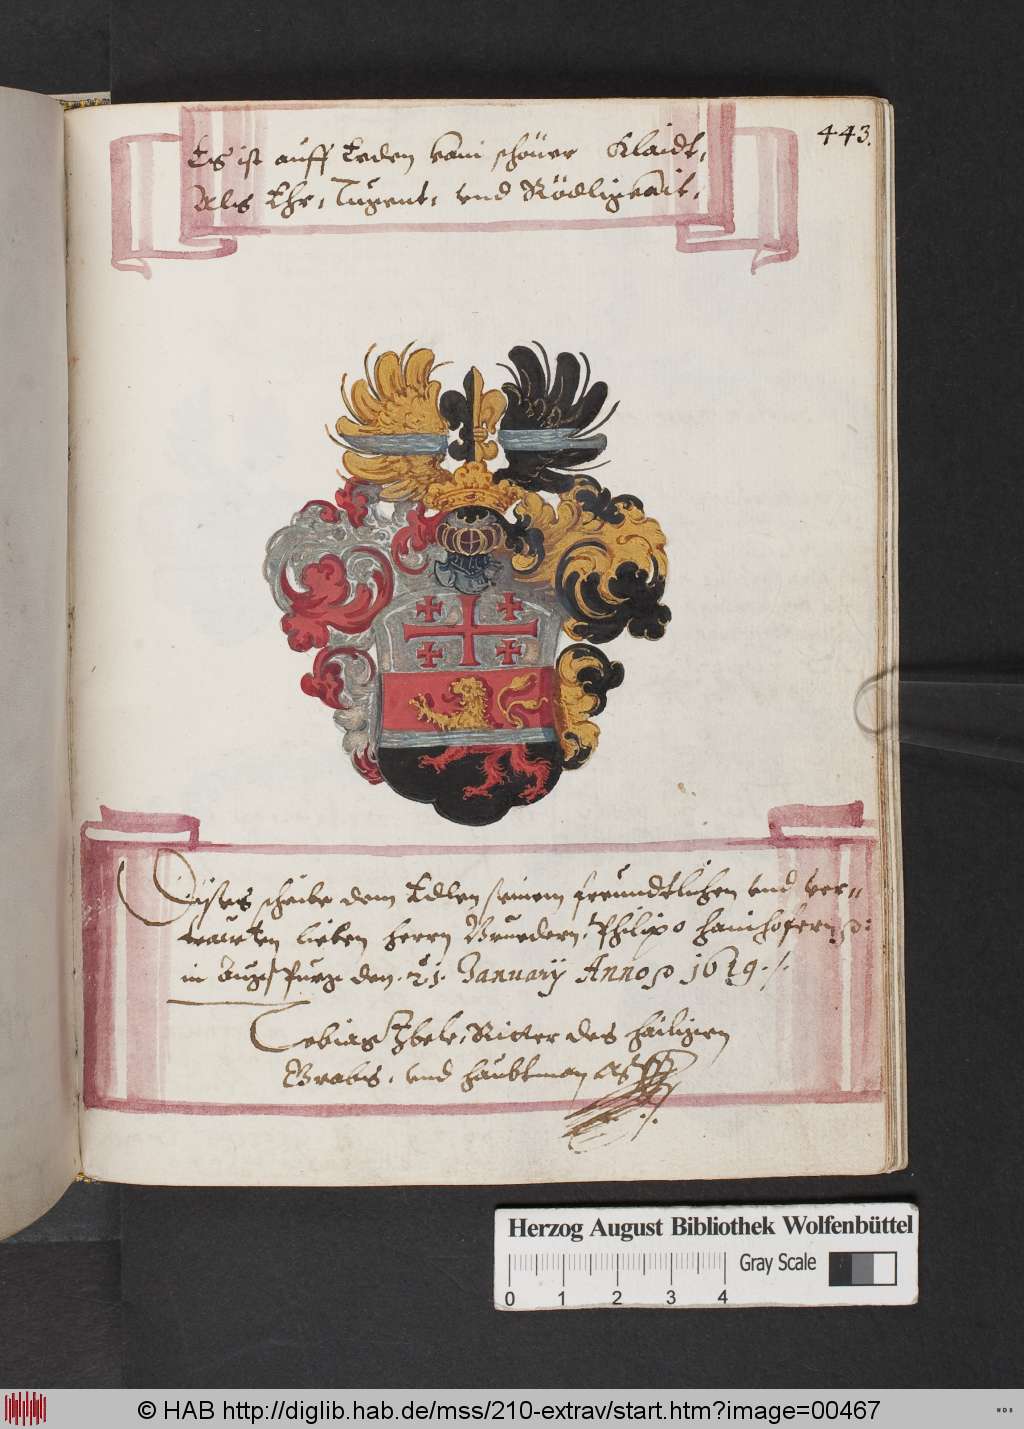 443.
Es ist auff Erden kain schöner Klaidt,
Als Ehr, Tugent, vnd Rödligkait.
Dises schribe dem Edlen seinem freundtlichen vnd ver-
traurten lieben herrn Bruedern, Philipo Hainhofern
in Augspurg den 21. January Anno 1619.
Tobias Ebele, Ritter des hailigen
Grabs, vnd haubtman
Herzog August Bibliothek Wolfenbüttel
Gray Scale
0 1 2 3 4
© HAB http://diglib.hab.de/mss/210-extrav/start.htm?image=00467